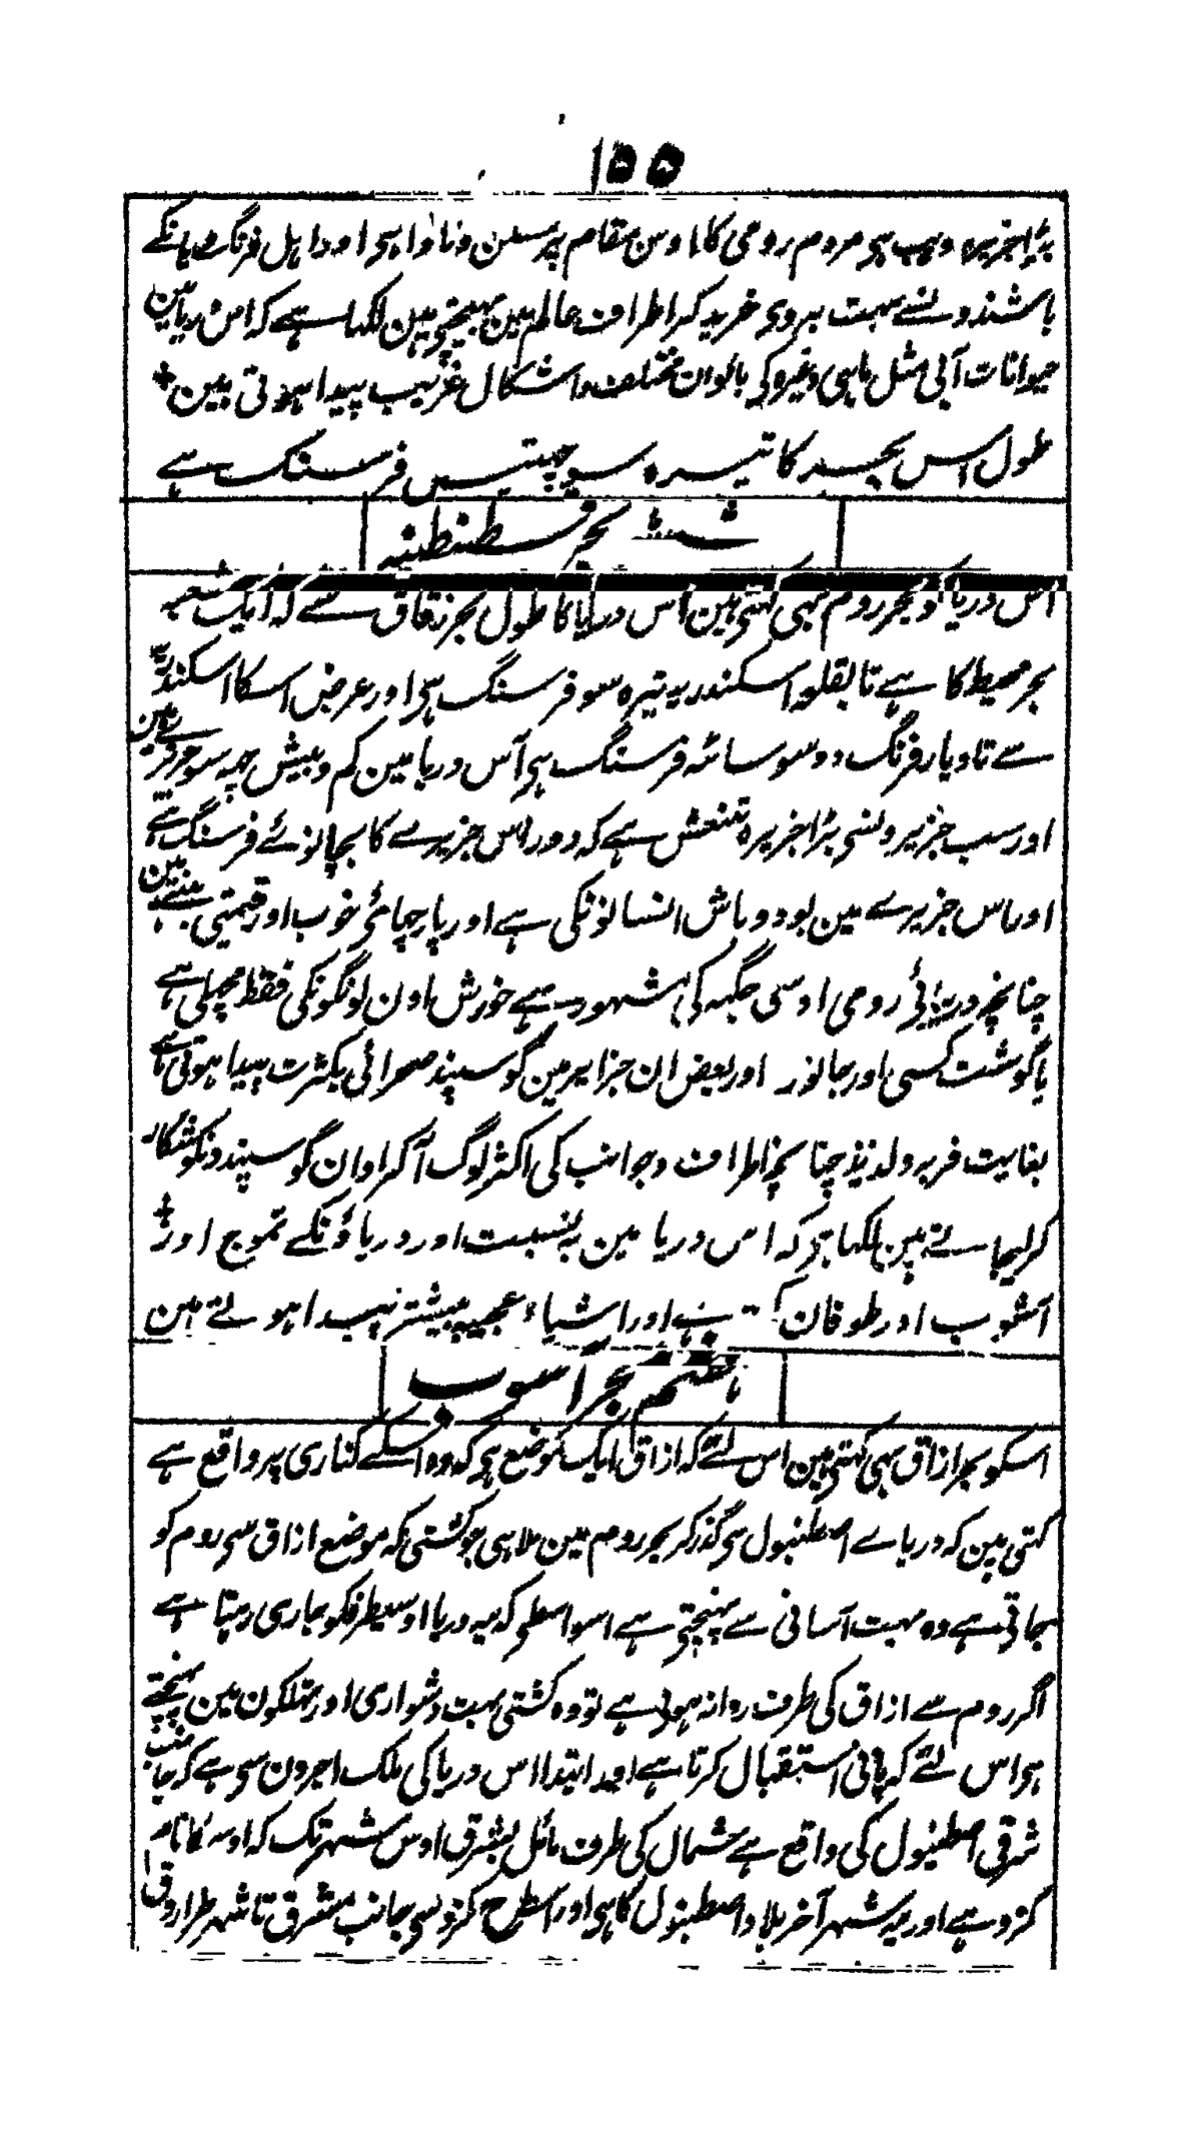 ۱۵۵
بڑا جزیرہ وہیب ہی مردم رومی کا اوس مقام پر مسکن و ماوا ہی اور اہل فرنگ وہانکے
باشندوںسے بہت بردی خرید کر اطراف عالم مین بھیجتی ہین لکھا ہے کہ اس دریا مین
حیوانات آبی مثل ماہی وغیرہ کی بالوان مختلف و اشکال غریب پیدا ہوتی ہین
طول اس بحر کا تیرہ سو چھتیس فرسنگ ہے
ششم بحر قسطنطنیہ
اس دریا کو بحر روم بہی کہتی ہین اس دریا کا طول بحر زقاق سے کہ ایک شعبہ
بحر محیط کا ہے تا بقلعہ اسکندریہ تیرہ سو فرسنگ ہی اور عرض اسکا اسکندریہ
سے تا دیار فرنگ دو سو ساٹھ فرسنگ ہی اس دریا مین کم و بیش چہ سو جزیرے ہین
اور سب جزیرونسی بڑا جزیرہ ہے کہ دور اس جزیرے کا پچانوے فرسنگ ہے
اور اس جزیرے مین بود و باش انسانونکی ہے اور پارچائے خوب اور قیمتی بنتے ہین
چنانچہ دیبائی رومی اوسی جگہہ کی مشہور ہے خورش اون لوگونکی فقط مچہلی ہے
یا گوشت کسی اور جانور اور بعض ان جزایر مین گوسپند صحرائی بکثرت پیدا ہوتی ہے
بغایت فربہ و لذیذ چنانچہ اطراف و جوانب کی اکثر لوگ آکر اوان گوسپندونکو شکار
کر لیجاتے ہین لکھا ہی کہ اس دریا مین بہ نسبت اور دریاؤنکے تموج اور
آشوب اور طوفان کمتر ہے اور اشیاء عجیبہ بیشتر پیدا ہوتے ہین
ہفتم بحر اسوب
اسکو بحر ازاق بہی کہتی ہین اس لئے کہ ازاق ایک موضع ہی کہ وہ اسکے کناری پر واقع ہے
کہتی ہین کہ دریاے اصطنبول سی گذر کر بحر روم مین ملا ہی جو کشتی کہ موضع ازاق سی روم کو
جاتی ہے وہ بہت آسانی سے پہنچتی ہے اسواسطی کہ یہ دریا اوسیطرفکو جاری رہتا ہے
اگر روم سے ازاق کی طرف روانہ ہوئی ہے تو وہ کشتی بہت دشواری اور تہلکون مین پہنچتے
ہی اس لئے کہ پانی استقبال کرتا ہے اور ابتدا اس دریا کی ملک اجرون سی ہے کہ جانب
شرقی اصطنبول کی واقع ہے شمال کی طرف مائل بشرق اوس شہر تک کہ اوسکا نام
کزو ہے اور یہ شہر آخر بلاد اصطنبول کا ہی اور اسطرح کزوسی جانب مشرق تا شہر